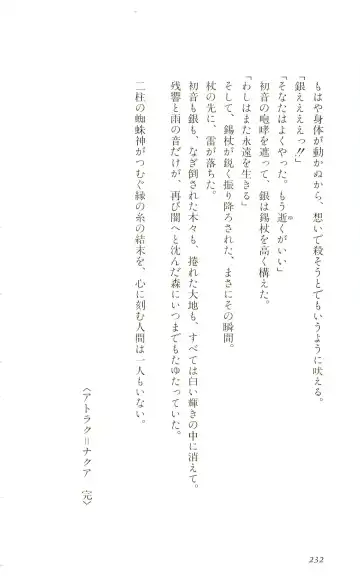 もはや身体が動かぬから、想いで殺そうとでもいうように吠える。
「銀ええええっ!!」
「そなたはよくやった。もう逝くがいい」
初音の咆哮を遮って、銀は錫杖を高く構えた。
「わしはまた永遠を生きる」
そして、錫杖が鋭く振り降ろされた、まさにその瞬間。
杖の先に、雷が落ちた。
初音も銀も、なぎ倒された木々も、捲れた大地も、すべては白い輝きの中に消えて。
残響と雨の音だけが、再び闇へと沈んだ森にいつまでもたゆたっていた。
二柱の蜘蛛神がつむぐ縁の糸の結末を、心に刻む人間は一人もいない。
〈アトラク=ナクア (完)〉
232